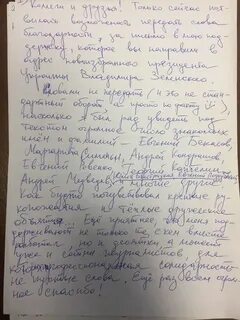 Коллеги и друзья! Только сейчас поя-
вилась возможность передать слова
благодарности, за письмо в мою под-
держку, которое вы направили в
адрес новоизбранного президента
Украины Владимира Зеленского.
Словами не передать (и это не стан-
дартный оборот, а просто по факту),
насколько я был рад увидеть под
текстом огромное число знакомых
имён и фамилий - Евгений Бекасов,
Маргарита Симоньян, Андрей Кондрашов,
Евгений
Андрей Медведев и многие другие.
Как будто почувствовал крепкие ру-
копожатия и тёплые дружеские
объятия. Ещё приятнее, что меня под-
держивают не только те, с кем вместе
работал, но и десятки, а может
уже и сотни журналистов, для
которых профессиональная солидарность
не пустые слова. Ещё раз всем огром-
ное спасибо!